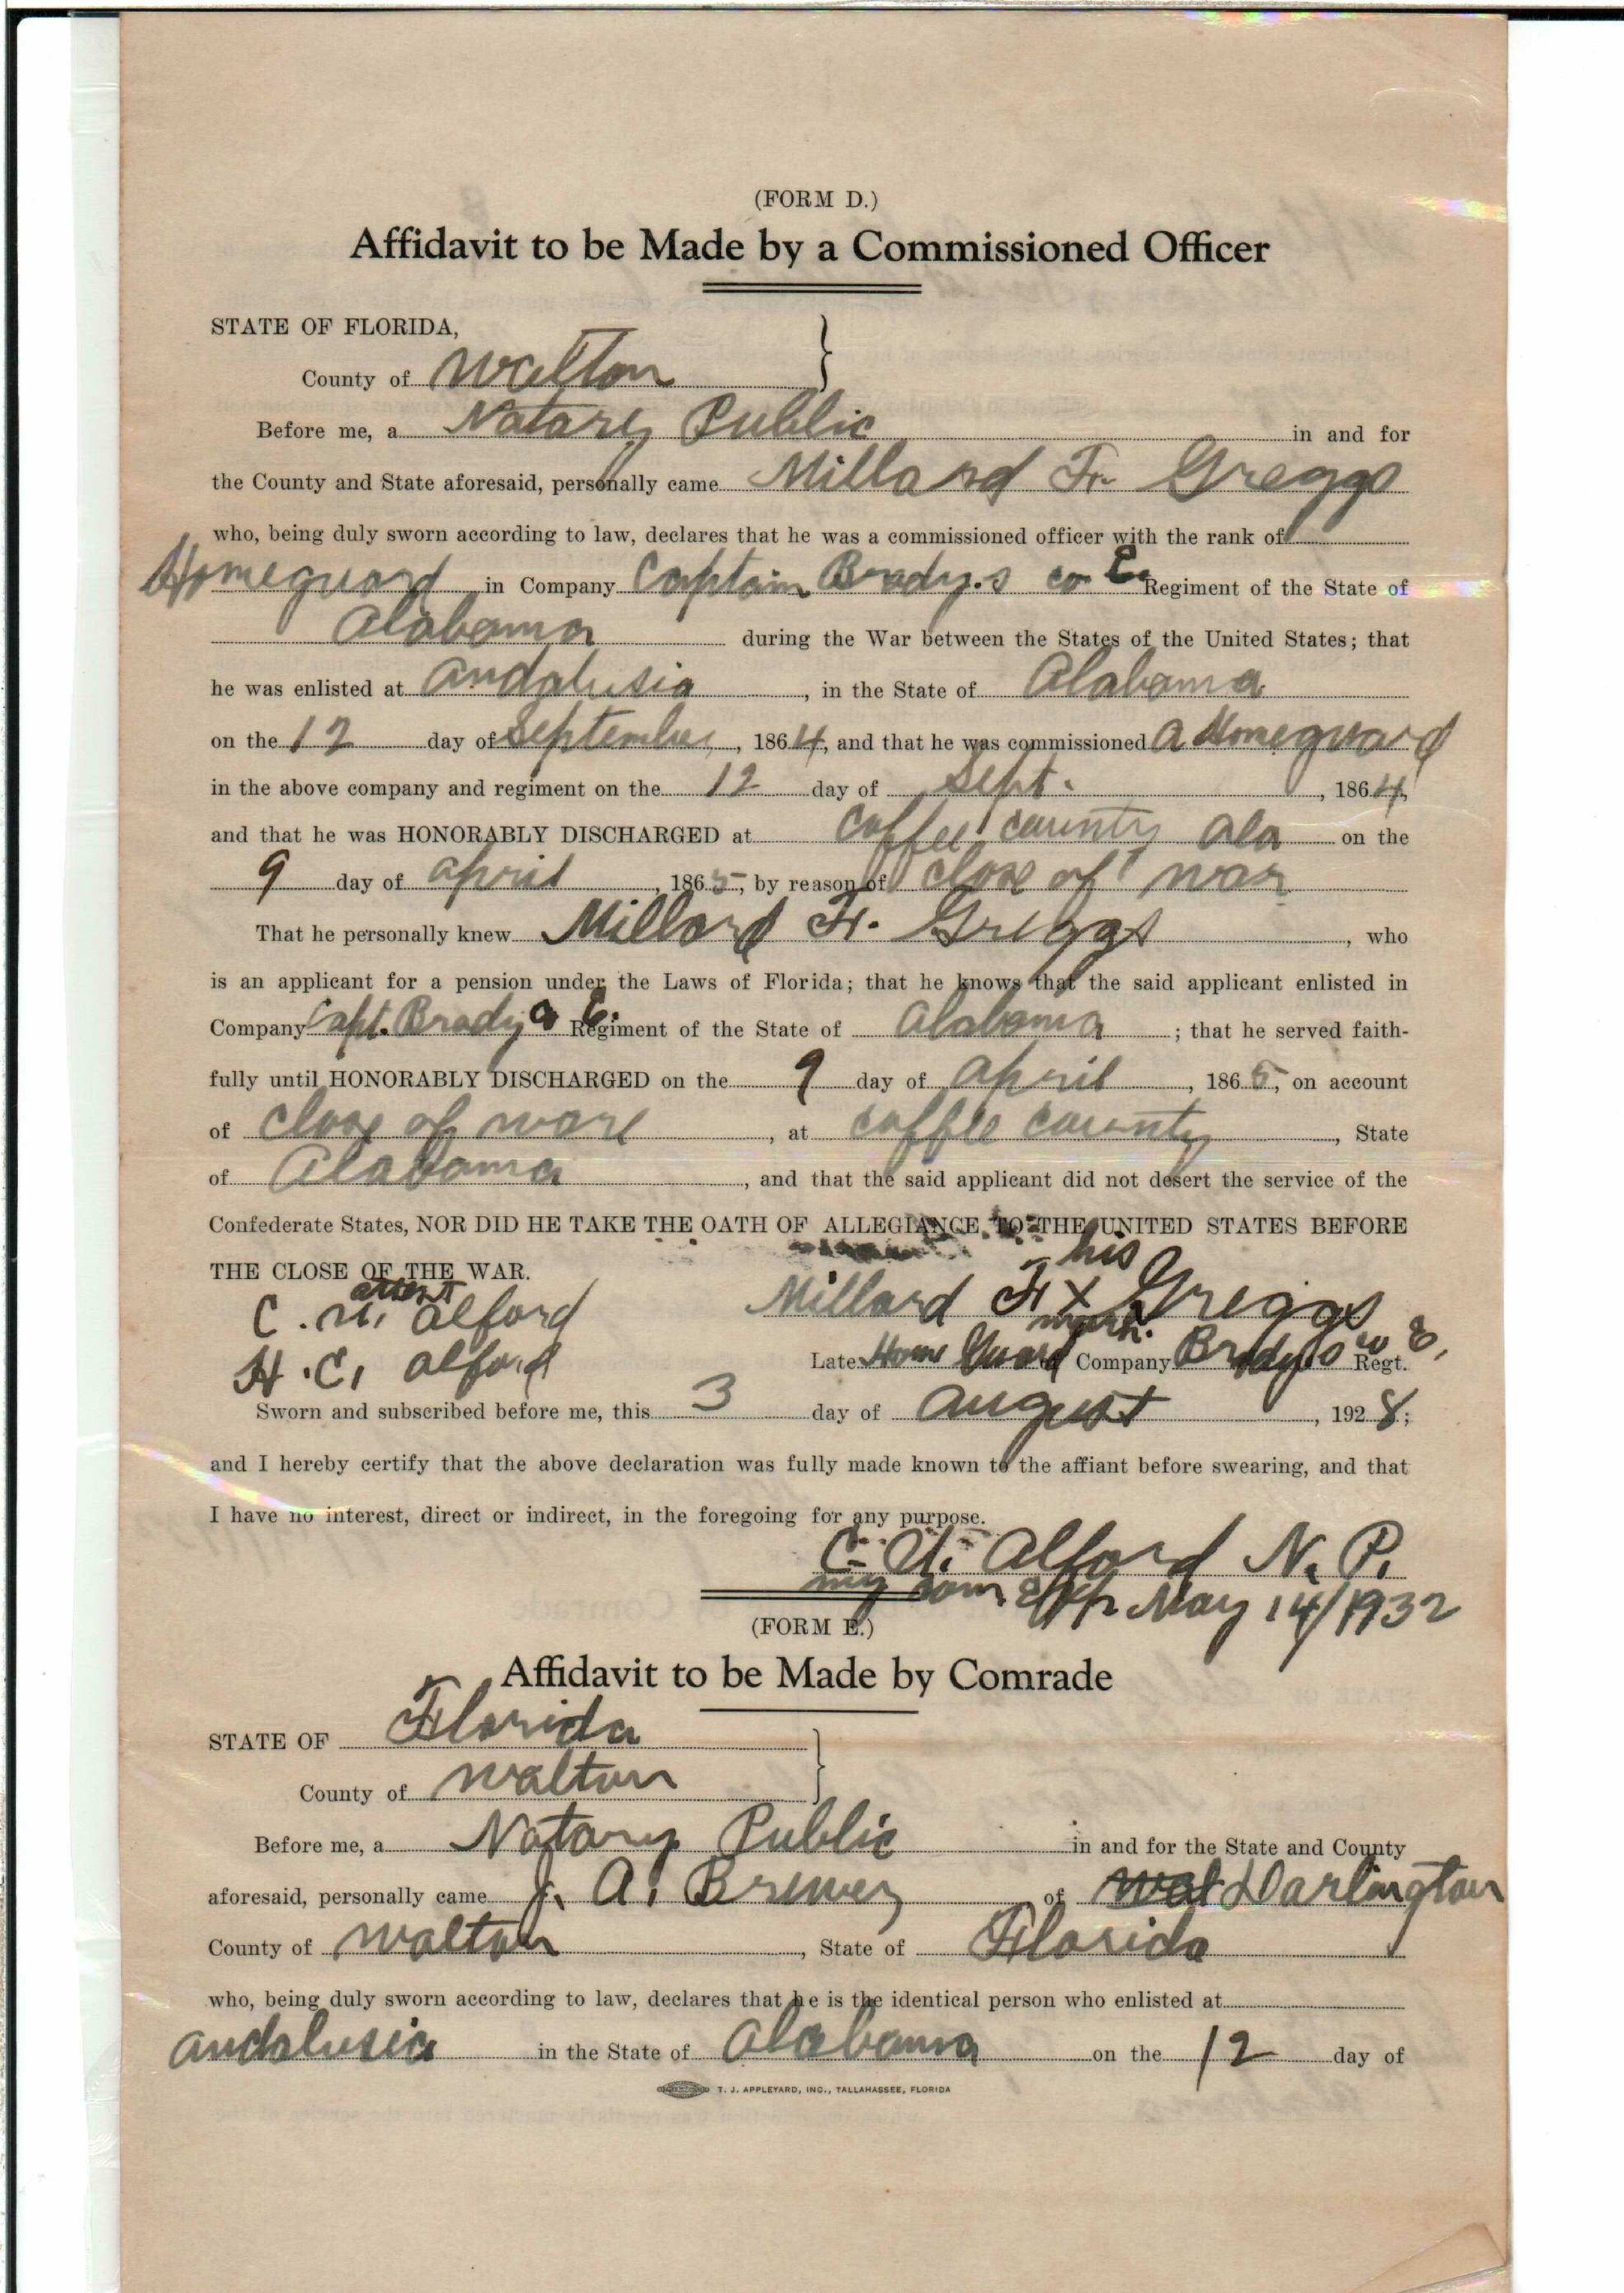 (FORM D.)
Affidavit to be Made by a Commissioned Officer
STATE OF FLORIDA,
County of Walton
Before me, a Notary Public in and for
the County and State aforesaid, personally came Millard Fr. Greggs
who, being duly sworn according to law, declares that he was a commissioned officer with the rank of
Homeguard in Company Captain Brady.s co E. Regiment of the State of
Alabama during the War between the States of the United States; that
he was enlisted at andalusia, in the State of Alabama
on the 12 day of September, 1864, and that he was commissioned a Homeguard
in the above company and regiment on the 12 day of Sept., 1864,
and that he was HONORABLY DISCHARGED at Coffee county ala on the
9 day of april, 1865, by reason of close of war
That he personally knew Millard Fr. Griggs, who
is an applicant for a pension under the Laws of Florida; that he knows that the said applicant enlisted in
Company Capt. Brady Regiment of the State of Alabama; that he served faith-
fully until HONORABLY DISCHARGED on the 9 day of april, 1865, on account
of close of ware, at coffee county, State
of Alabama, and that the said applicant did not desert the service of the
Confederate States, NOR DID HE TAKE THE OATH OF ALLEGIANCE TO THE UNITED STATES BEFORE
THE CLOSE OF THE WAR.
his
attest
C. H. Alford Millard Fr X Greggs
mark.
H. C. alford Late Home Guard Company Bradys co E, Regt.
Sworn and subscribed before me, this 3 day of august, 1928;
and I hereby certify that the above declaration was fully made known to the affiant before swearing, and that
I have no interest, direct or indirect, in the foregoing for any purpose.
C. H. Alford N. P.
my com Exp May 14/1932
(FORM E.)
Affidavit to be Made by Comrade
STATE OF Florida
County of Walton
Before me, a Notary Public in and for the State and County
aforesaid, personally came J. A. Brewer of Darlington
County of Walton, State of Florida
who, being duly sworn according to law, declares that he is the identical person who enlisted at
andalusia in the State of Alabama on the 12 day of
T. J. APPLEYARD, INC., TALLAHASSEE, FLORIDA